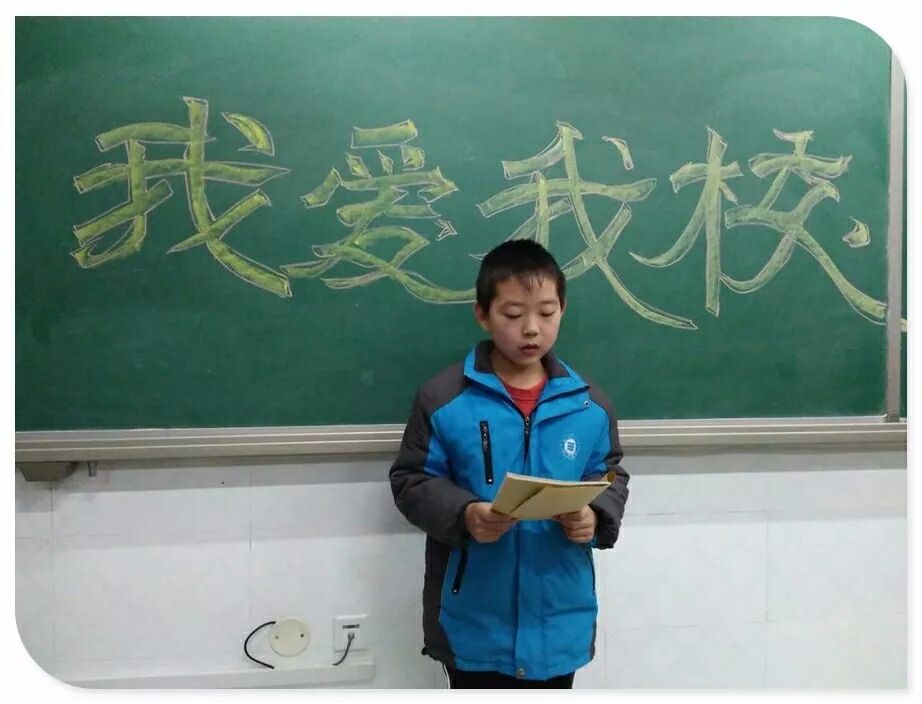 我爱我校